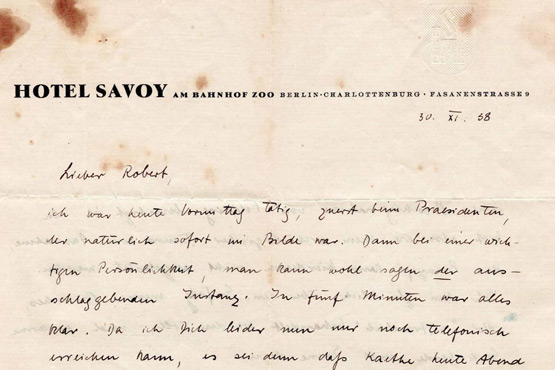 HOTEL SAVOY AM BAHNHOF ZOO BERLIN-CHARLOTTENBURG · FASANENSTRASSE 9
30. XI. 58
Lieber Robert,
ich war heute Vormittag tätig, zuerst beim Praesidenten,
der natürlich sofort im Bilde war. Dann bei einer wich-
tigen Persönlichkeit, man kann wohl sagen der aus-
schlaggebenden Instanz. In fünf Minuten war alles
klar. Da ich Dich leider nun nur noch telefonisch
erreichen kann, es sei denn dafs Kaethe heute Abend